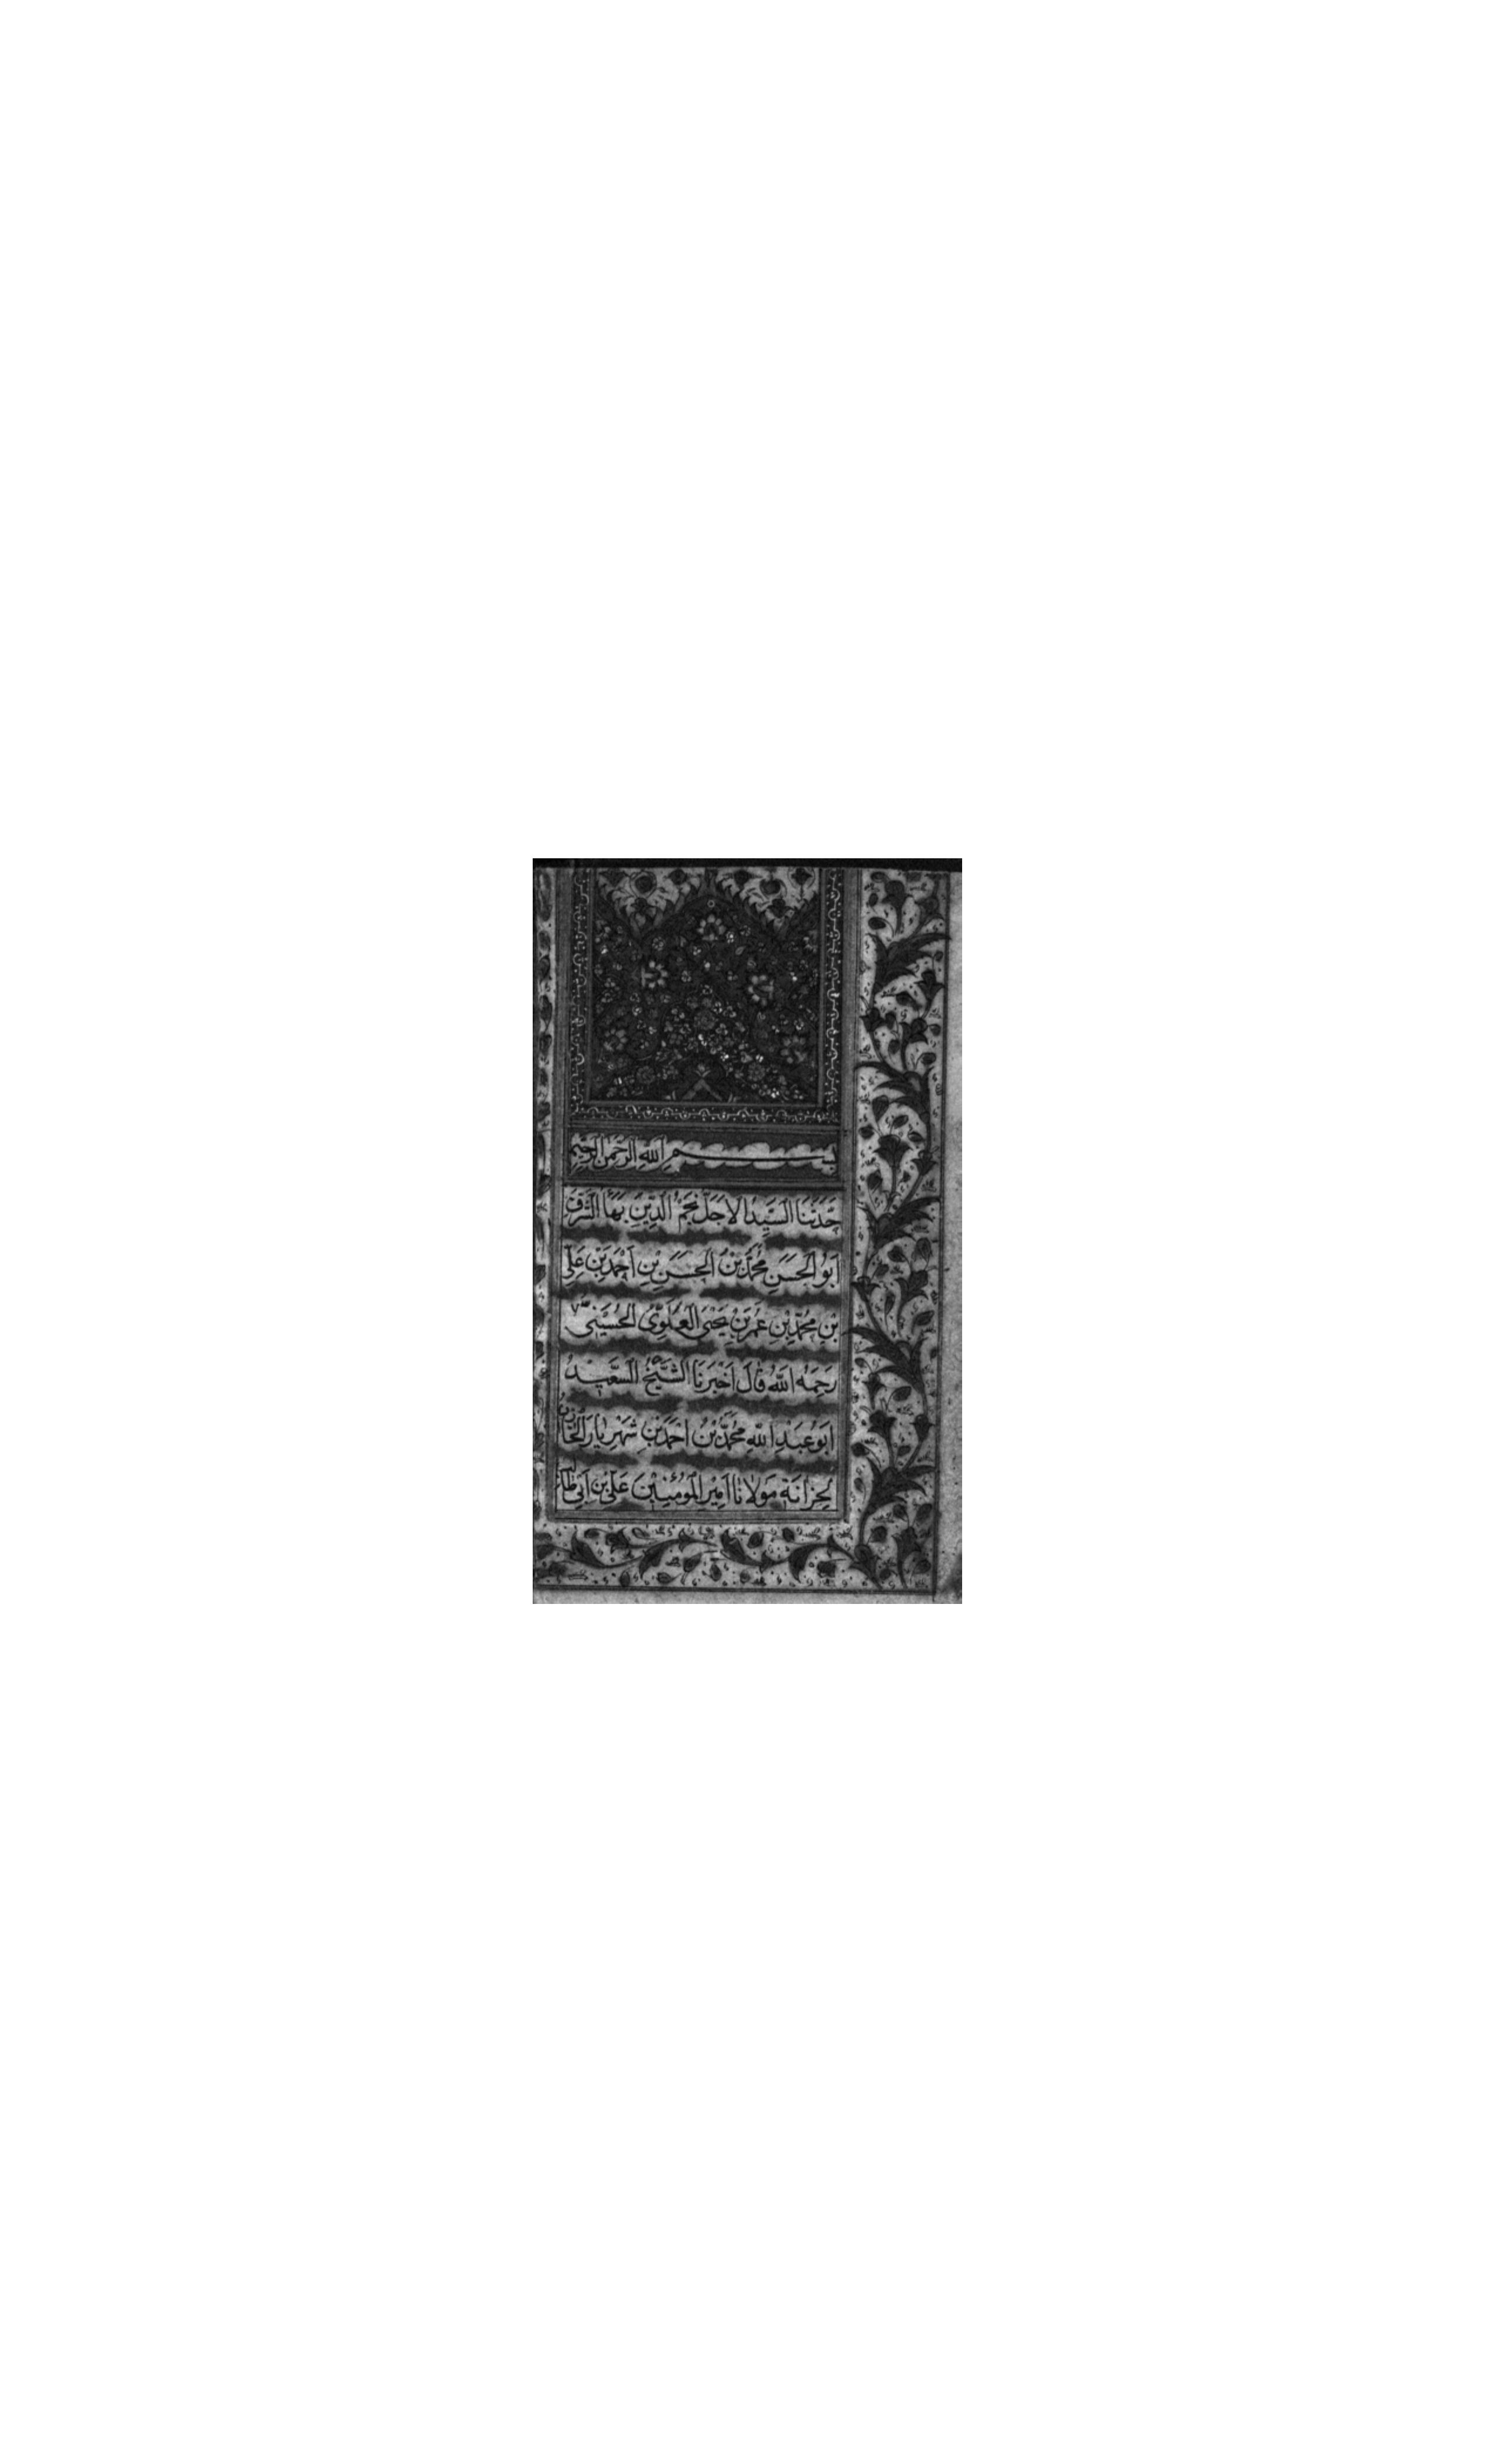 بسم الله الرحمن الرحيم
حَدَّثَنَا السَّيِّدُ الاَجَلُّ نَجْمُ الدِّينِ بَهَاءُ الشَّرَفِ
اَبُو الْحَسَنِ مُحَمَّدُ بْنُ الْحَسَنِ بْنِ اَحْمَدَ بْنِ عَلِيِّ
بْنِ مُحَمَّدِ بْنِ عُمَرَ بْنِ يَحْيَى الْعَلَوِيُّ الْحُسَيْنِيُّ
رَحِمَهُ اللهُ قَالَ اَخْبَرَنَا الشَّيْخُ السَّعِيْدُ
اَبُو عَبْدِ اللهِ مُحَمَّدُ بْنُ اَحْمَدَ بْنِ شَهْرِيَارَ الْخَازِنُ
لِخِزَانَةِ مَوْلَانَا اَمِيْرِ الْمُؤْمِنِيْنَ عَلِيِّ بْنِ اَبِي طَالِبٍ